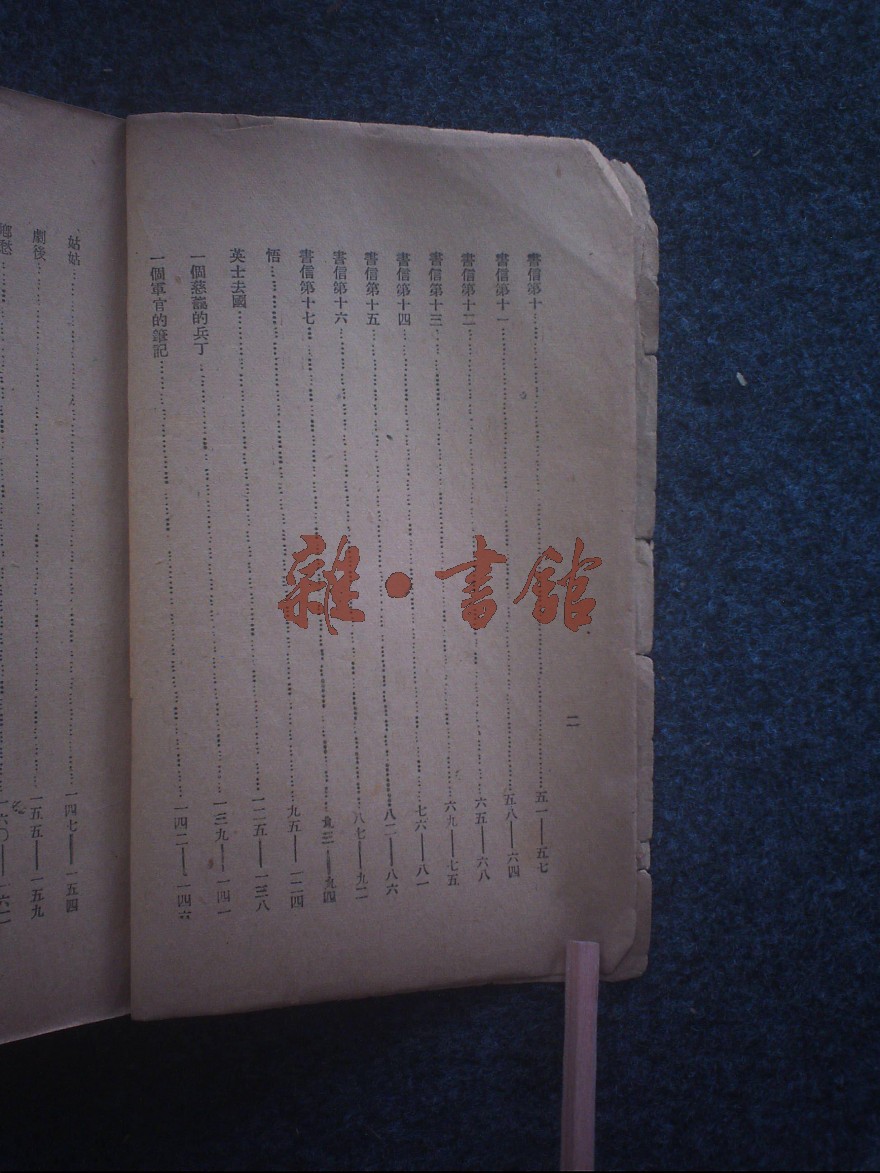 二
書信第十……五一——五七
書信第十一……五八——六四
書信第十二……六五——六八
書信第十三……六九——七五
書信第十四……七六——八一
書信第十五……八二——八六
書信第十六……八七——九二
書信第十七……九三——九四
悟……九五——一二四
英士去國……一二五——一三八
一個慈藹的兵丁……一三九——一四一
一個軍官的筆記……一四二——一四六
姑姑……一四七——一五四
劇後……一五五——一五九
鄉愁……一六〇——
雜·書館